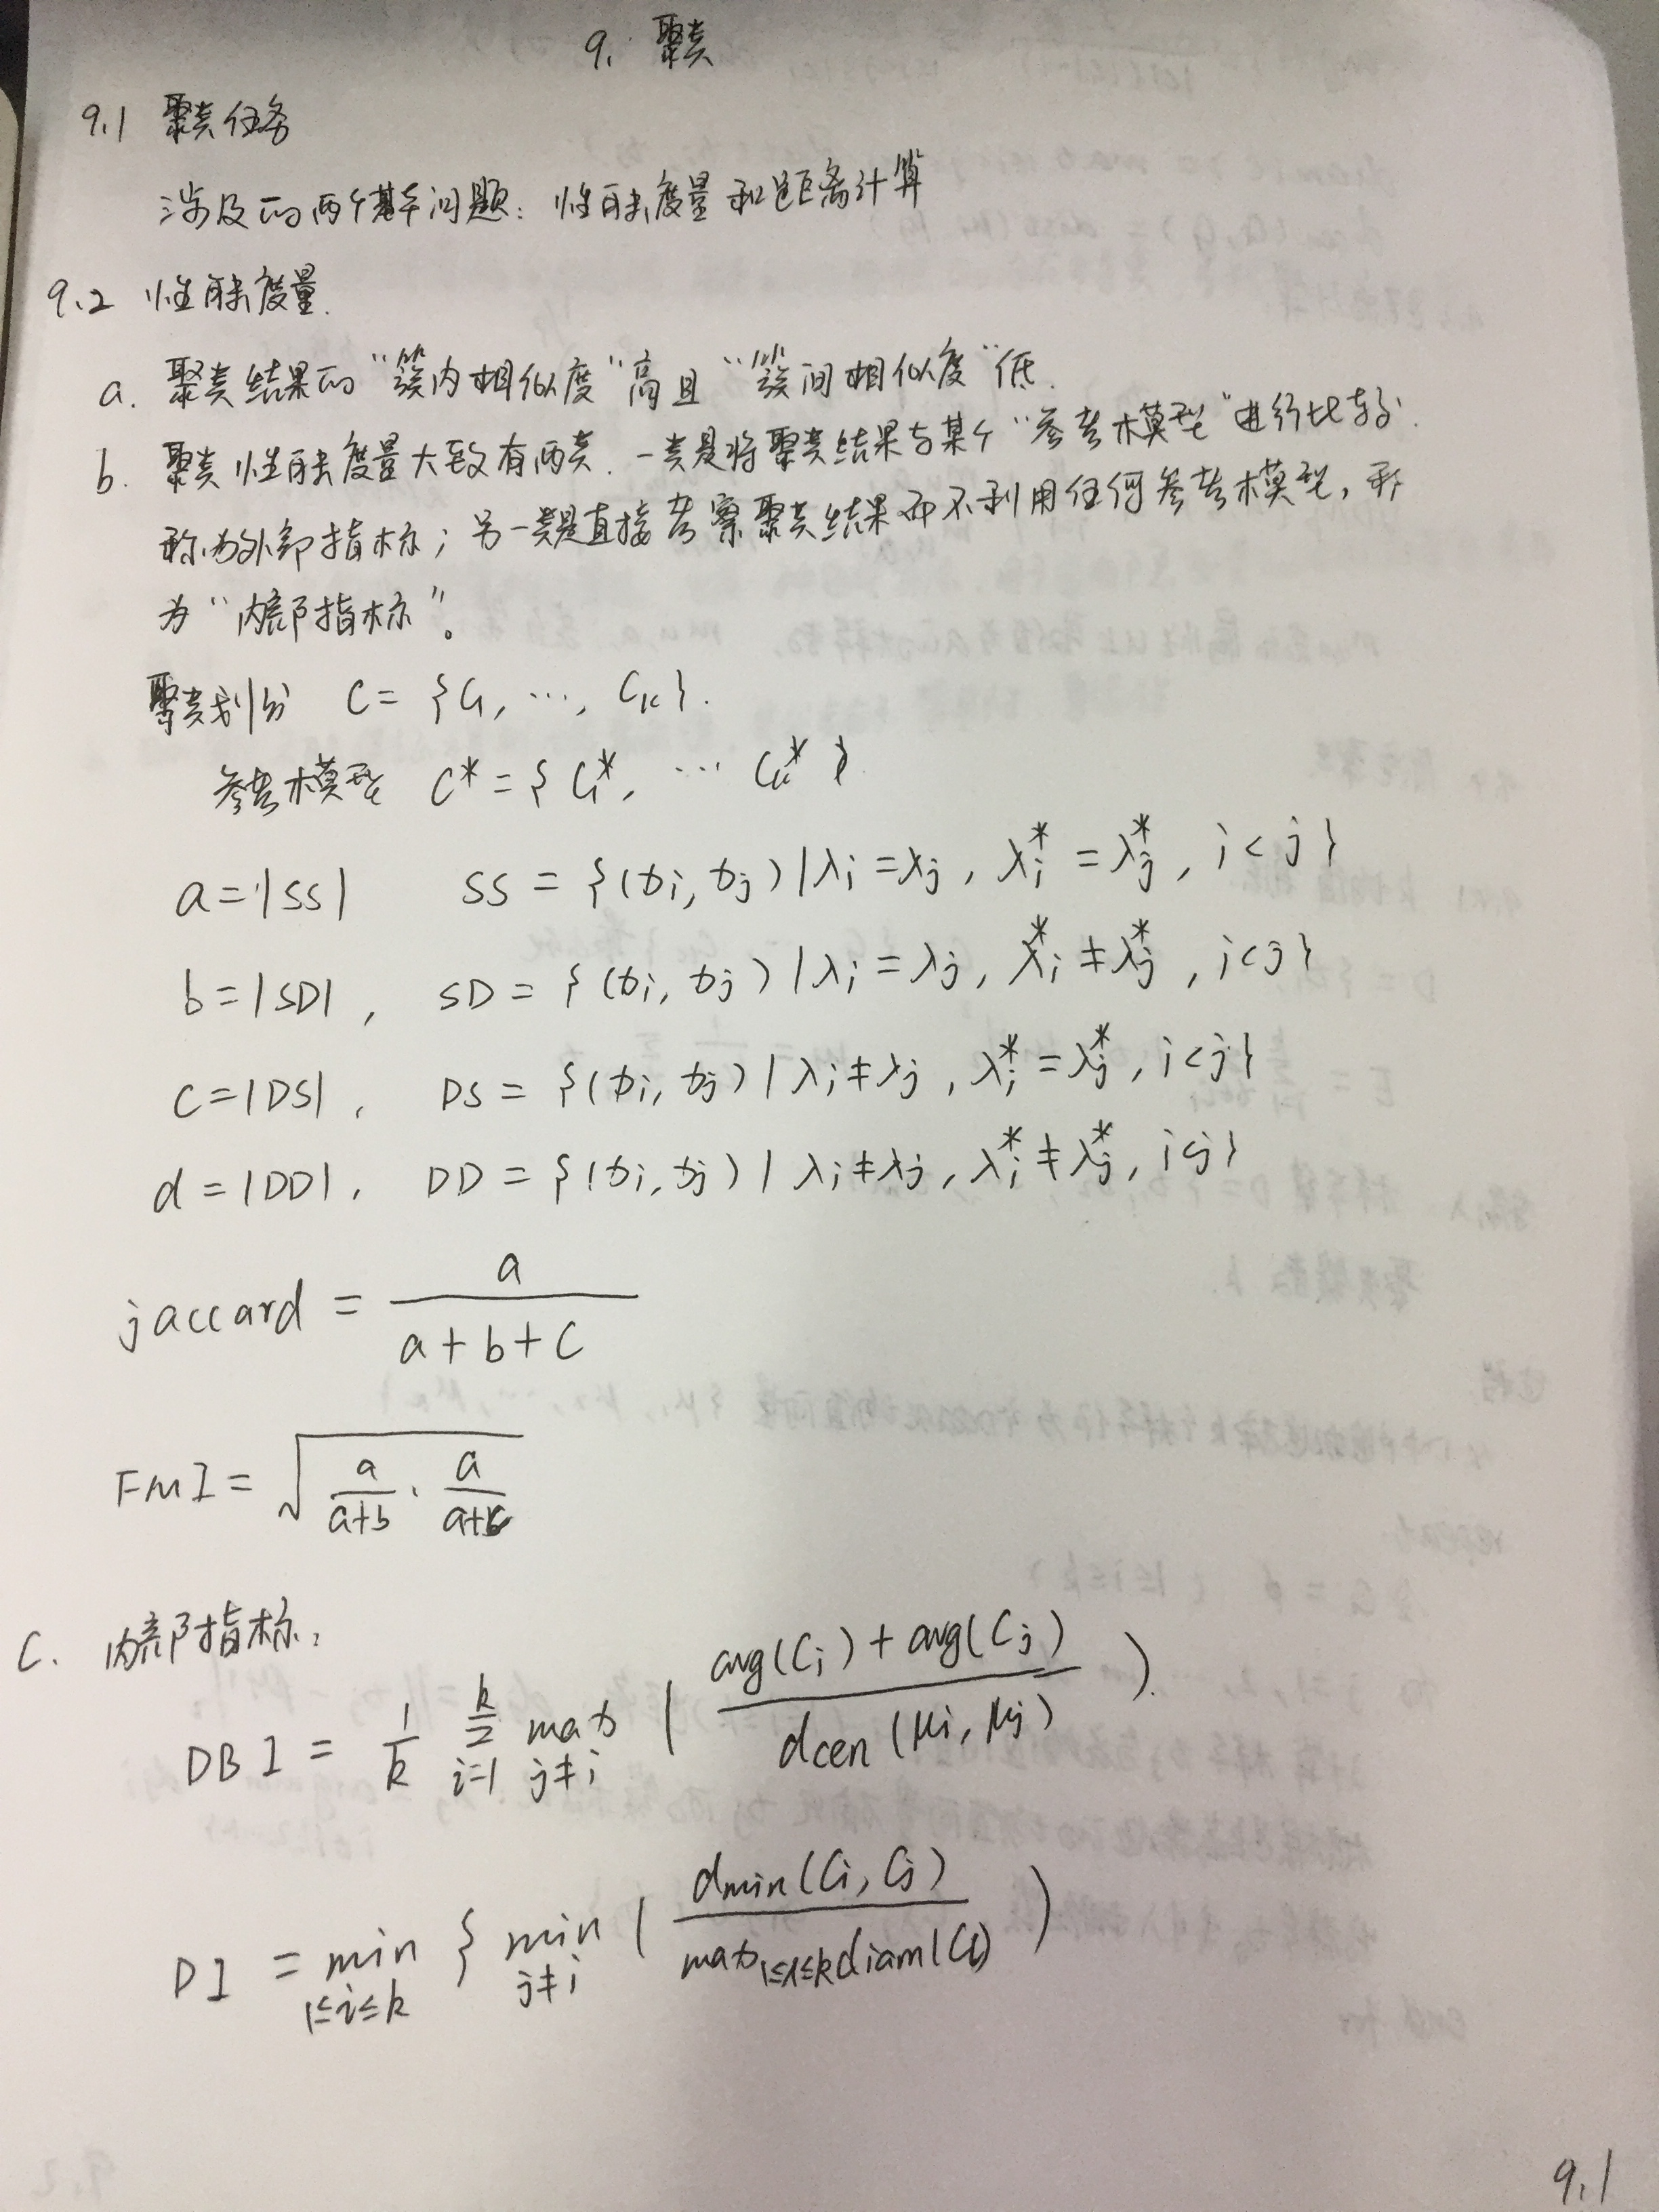 9. 聚类
9.1 聚类任务
涉及的两个基本问题：性能度量和距离计算
9.2 性能度量.
a. 聚类结果的“簇内相似度”高且“簇间相似度”低.
b. 聚类性能度量大致有两类. 一类是将聚类结果与某个“参考模型”进行比较.
称为外部指标；另一类是直接考察聚类结果而不利用任何参考模型，称
为“内部指标”。
聚类划分 C = {C₁, ⋯, Cₖ}.
参考模型 C* = {C₁*, ⋯ Cₖ*}
a = |SS| SS = {(xᵢ, xⱼ) | λᵢ = λⱼ, λᵢ* = λⱼ*, i < j}
b = |SD|, SD = {(xᵢ, xⱼ) | λᵢ = λⱼ, λᵢ* ≠ λⱼ*, i < j}
c = |DS|, DS = {(xᵢ, xⱼ) | λᵢ ≠ λⱼ, λᵢ* = λⱼ*, i < j}
d = |DD|, DD = {(xᵢ, xⱼ) | λᵢ ≠ λⱼ, λᵢ* ≠ λⱼ*, i < j}
jaccard = a / (a + b + c)
FMI = √(a/(a+b) · a/(a+c))
C. 内部指标：
DBI = 1/k ∑_{i=1}^{k} max_{j≠i} ( (avg(Cᵢ) + avg(Cⱼ)) / dcen(μᵢ, μⱼ) ).
DI = min_{1≤i≤k} { min_{j≠i} ( dmin(Cᵢ, Cⱼ) / max_{1≤l≤k} diam(Cₗ) )
9.1